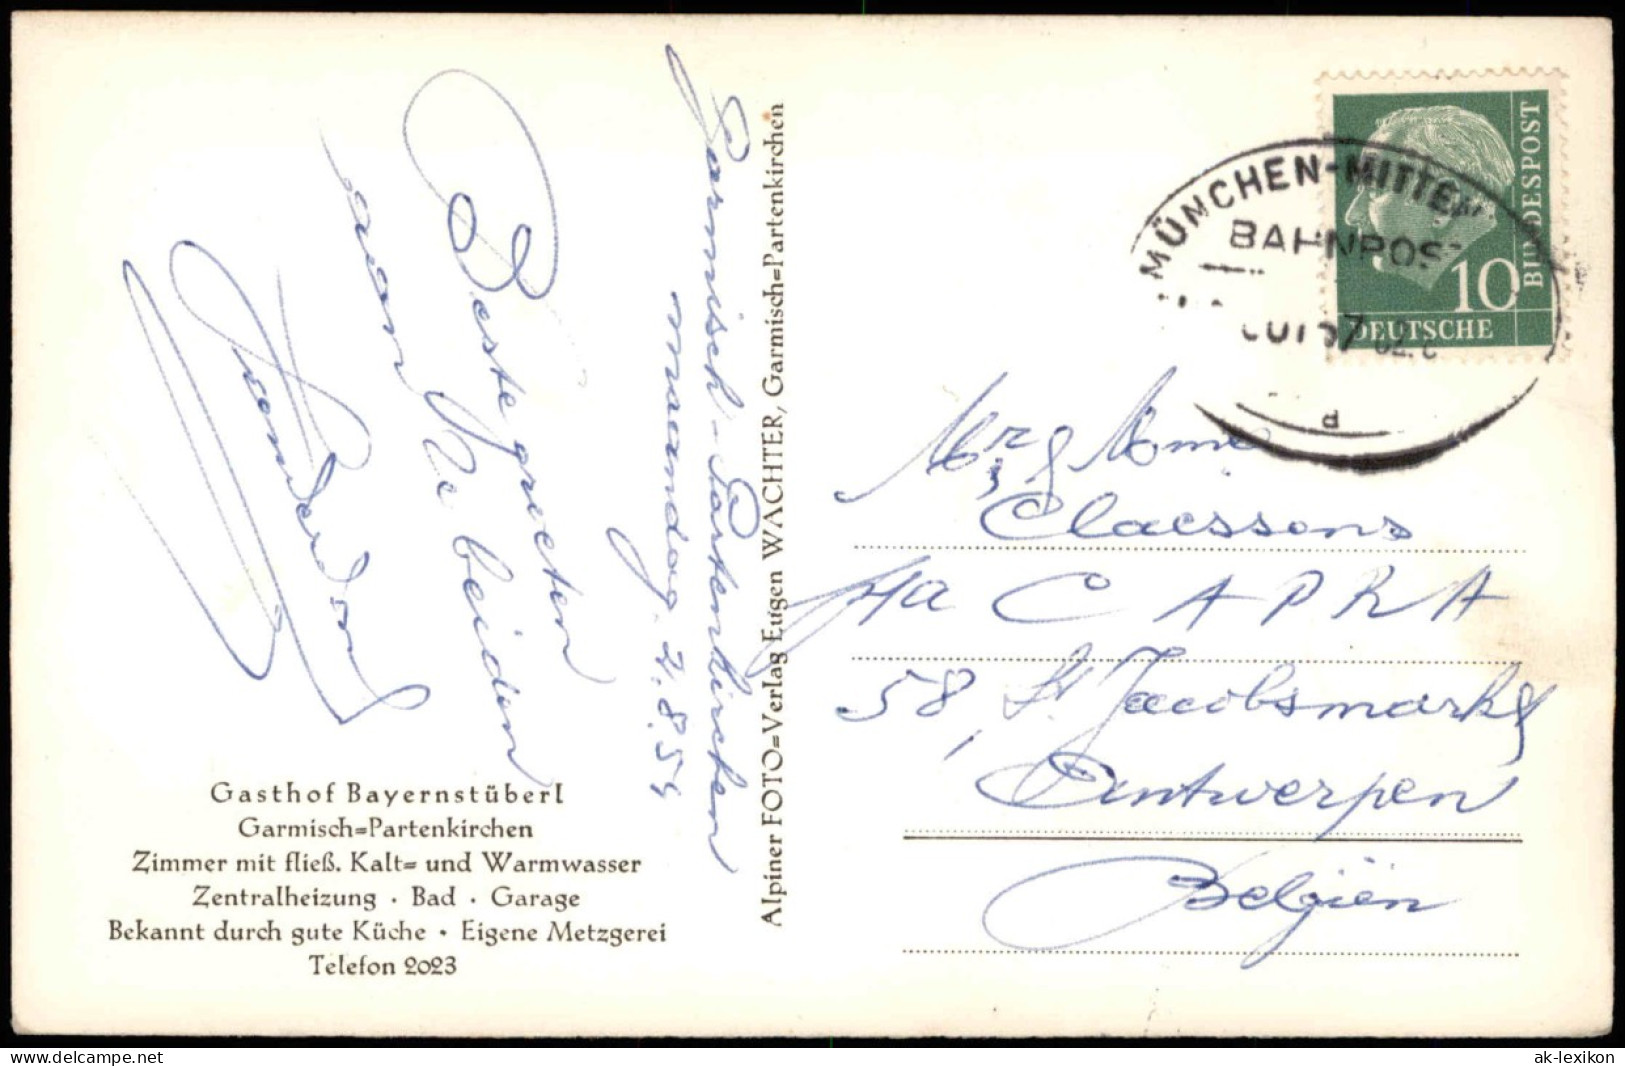 Garmisch-Partenkirchen
maandag 2.8.54
Beste groeten
aan U beiden
Gasthof Bayernstüberl
Garmisch=Partenkirchen
Zimmer mit fließ. Kalt= und Warmwasser
Zentralheizung · Bad · Garage
Bekannt durch gute Küche · Eigene Metzgerei
Telefon 2023
Alpiner FOTO=Verlag Eugen WACHTER, Garmisch=Partenkirchen
DEUTSCHE BUNDESPOST
10
MÜNCHEN-MITTENW
BAHNPOST
d
Claessens
CAPRA
58, St Jacobsmarkt
Antwerpen
Belgïen
www.delcampe.net
ak-lexikon